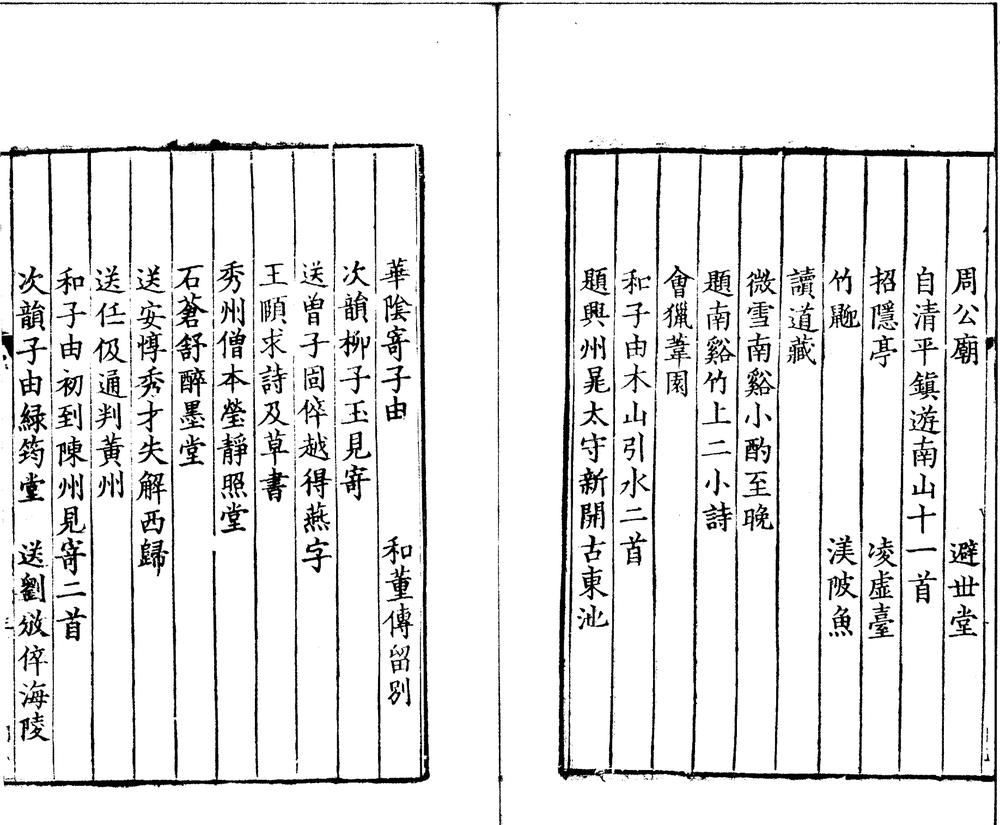 周公廟 避丗堂
自清平鎮遊南山十一首
招隱亭 凌虛臺
竹䶉 渼陂魚
讀道藏
微雪南谿小酌至晚
題南谿竹上二小詩
會獵葦園
和子由木山引水二首
題興州晁太守新開古東池
華陰寄子由 和董傳留別
次韻柳子玉見寄
送曾子固倅越得燕字
王頤求詩及草書
秀州僧本瑩靜照堂
石蒼舒醉墨堂
送安惇秀才失解西歸
送任伋通判黃州
和子由初到陳州見寄二首
次韻子由緑筠堂 送劉攽倅海陵